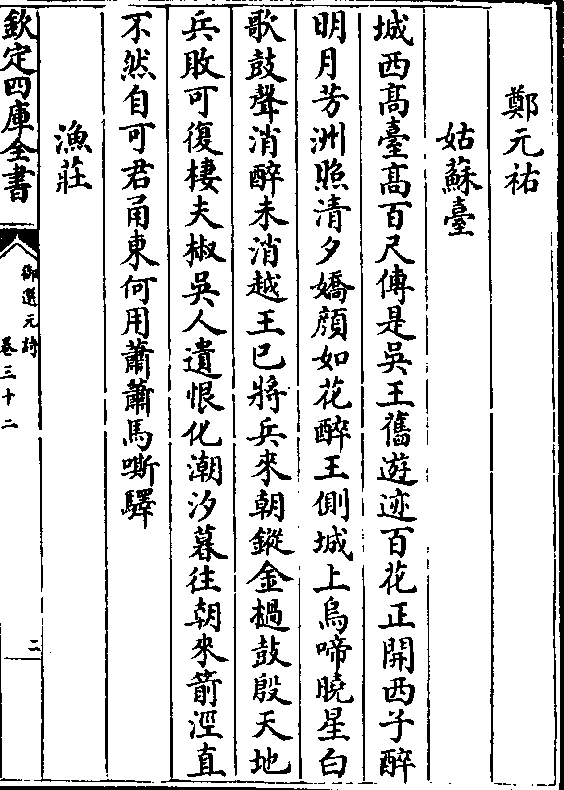 鄭元祐
姑蘇臺
城西髙臺髙百尺傳是吳王舊遊迹百花正開西子醉
明月芳洲照清夕嬌顔如花醉王側城上烏啼曉星白
歌鼓聲消醉未消越王已將兵來朝鏦金撾鼓殷天地
兵敗可復棲夫椒吳人遺恨化潮汐暮往朝來箭涇直
不然自可君甬東何用蕭蕭馬嘶驛
漁莊
欽定四庫全書
御選元詩
卷三十二
二